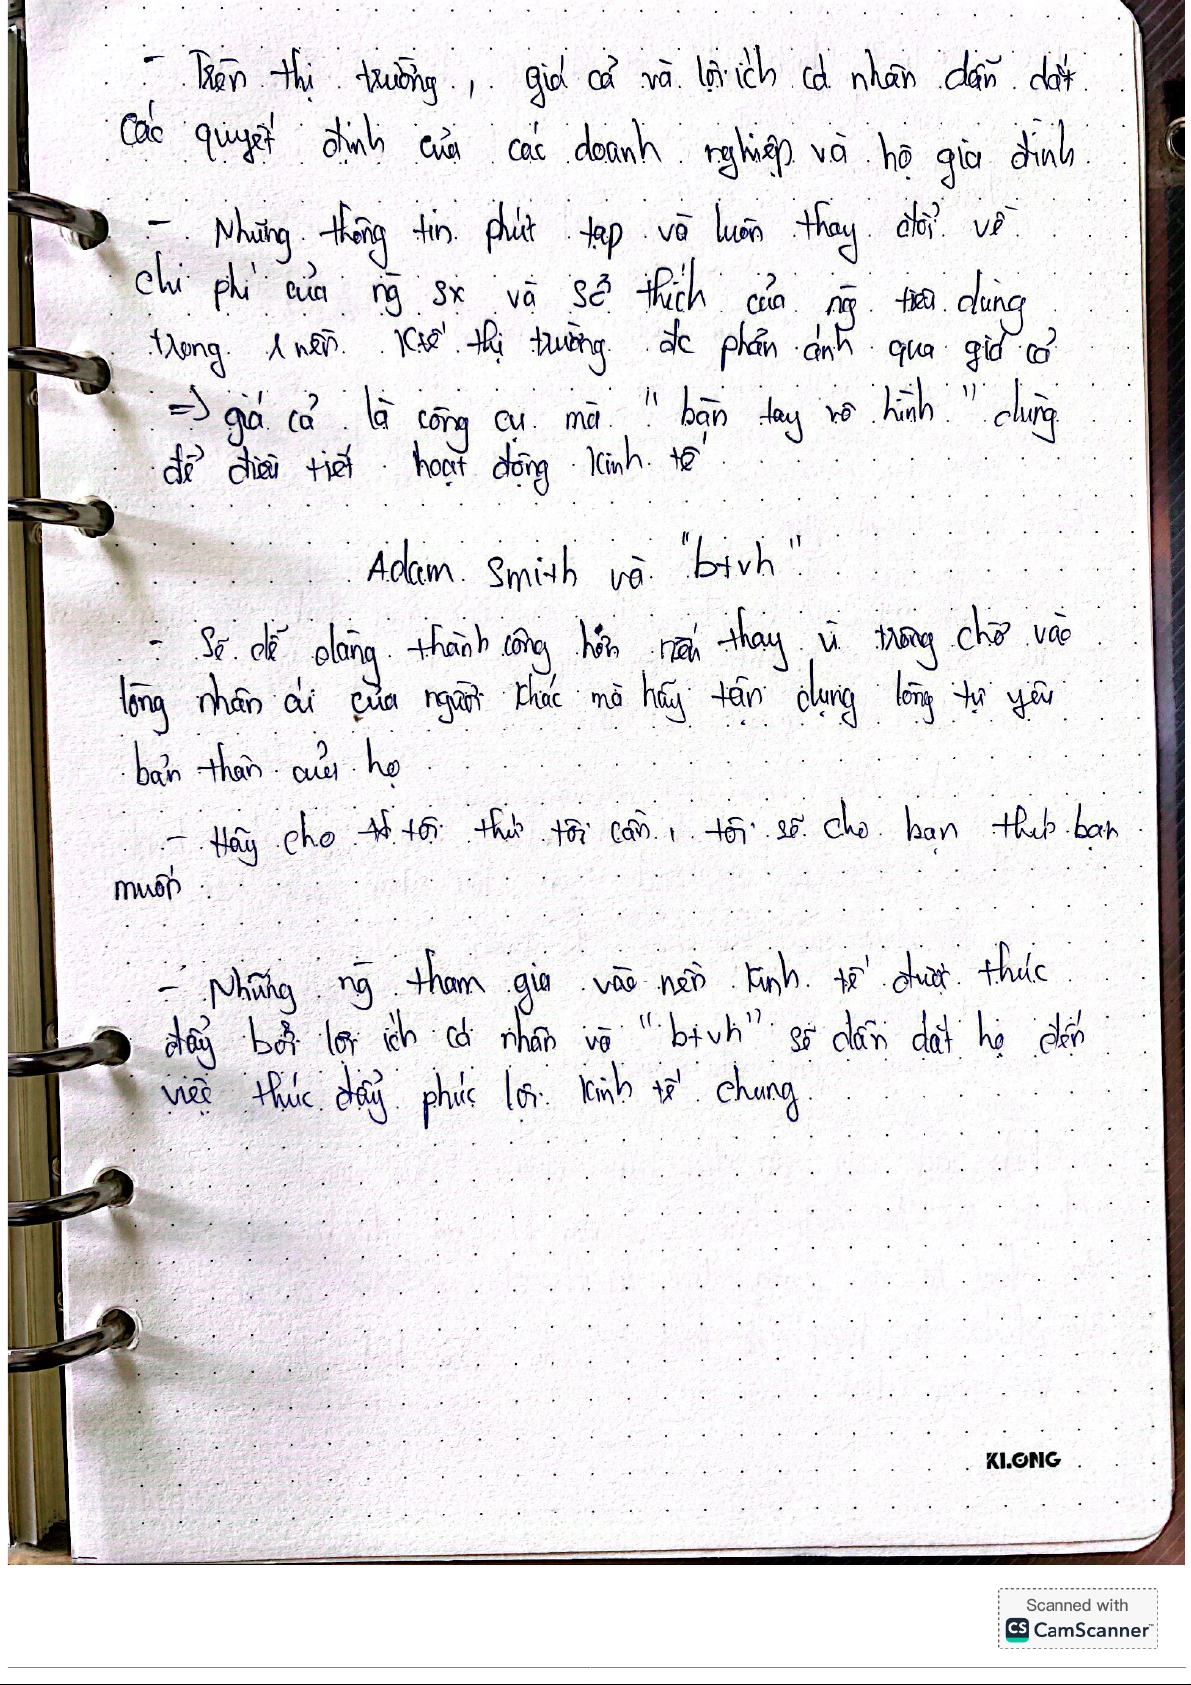 - Trên thị trường, giá cả và lợi ích cá nhân dẫn dắt
các quyết định của các doanh nghiệp và hộ gia đình
- Những thông tin phứt tạp và luôn thay đổi về
chi phí của ng̃ sx và sở thích của ng̃ tiêu dùng
trong 1 nền Ktế thị trường đc phản ánh qua giá cả
=> giá cả là công cụ mà "bàn tay vô hình" dùng
để điều tiết hoạt động kinh tế
Adam Smith và "btvh"
- Sẽ dễ dàng thành công hơn nếu thay vì trông chờ vào
lòng nhân ái của người khác mà hãy tận dụng lòng tự yêu
bản thân của họ
- Hãy cho tôi thứ tôi cần, tôi sẽ cho bạn thứ bạn
muốn
- Những ng̃ tham gia vào nền kinh tế được thúc
đẩy bởi lợi ích cá nhân và "btvh" sẽ dẫn dắt họ đến
việc thúc đẩy phúc lợi kinh tế chung
KLONG
Scanned with
CS CamScanner